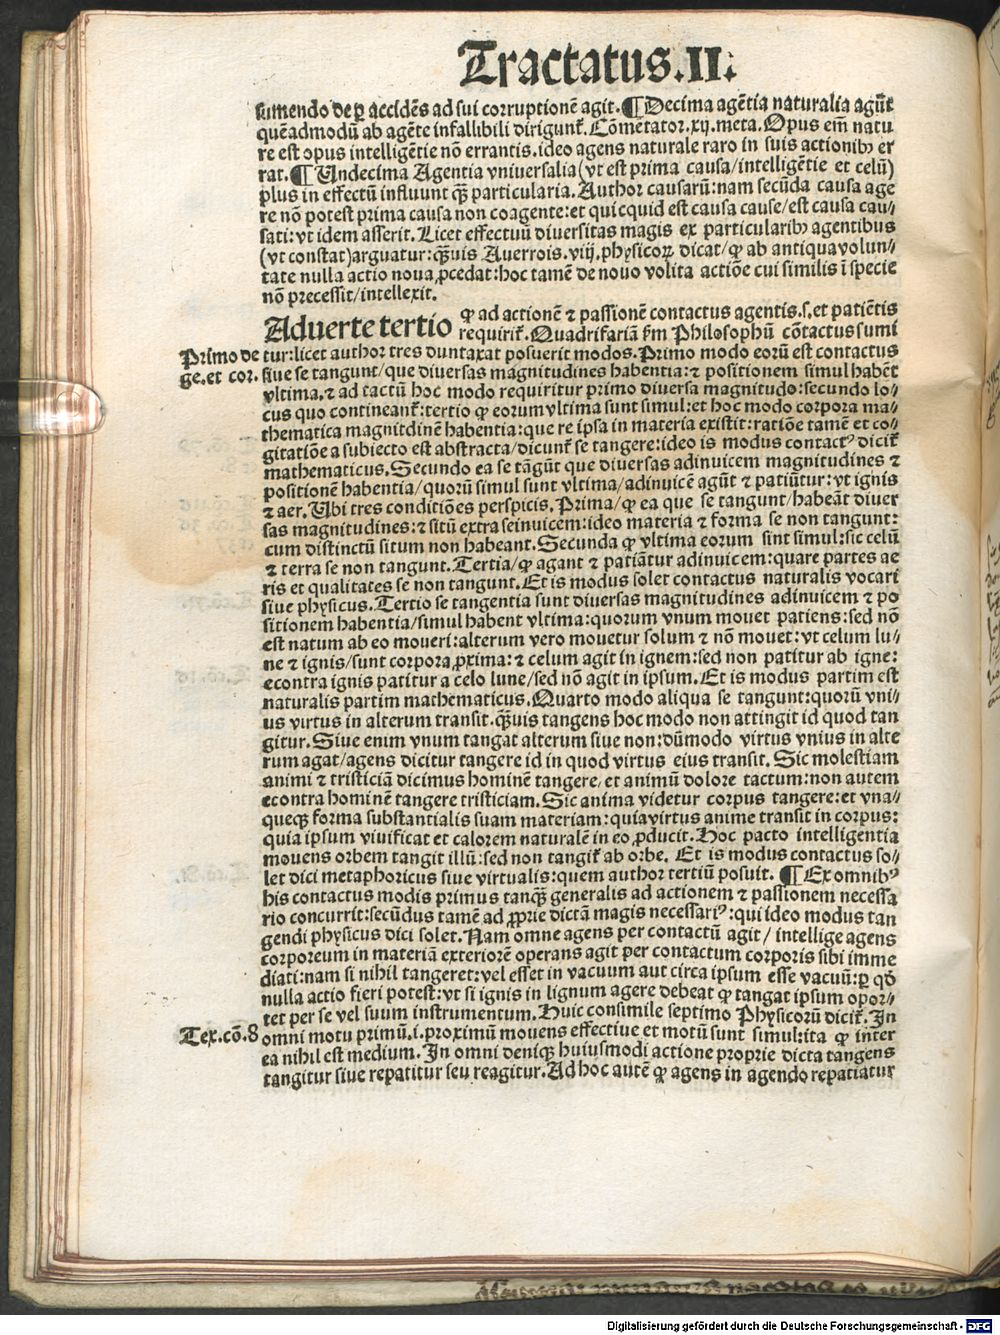 Tractatus.II.
sumendo de ꝑ accidēs ad sui corruptionē agit.¶Decima agētia naturalia agūt
quēadmodū ab agēte infallibili dirigunt̄.Cōmētator.xij.meta.Opus em̄ natu
re est opus intelligētie nō errantis.ideo agens naturale raro in suis actionibꝫ er
rat.¶Undecima Agentia vniuersalia(vt est prima causa/intelligētie et celū)
plus in effectū influunt qꝫ̄ particularia.Author causarū:nam secūda causa age
re nō potest prima causa non coagente:et quicquid est causa cause/est causa cau-
sati:vt idem asserit.Licet effectuū diuersitas magis ex particularibꝫ agentibus
(vt constat)arguatur:qꝫ̄uis Auerrois.viij.physicoꝝ dicat/ꝙ ab antiqua volun⸗
tate nulla actio noua ꝓcedat:hoc tamē de nouo volita actiōe cui similis ī specie
nō precessit/intellexit.
Aduerte tertio ꝙ ad actionē ⁊ passionē contactus agentis.s.et patiētis
requirit̄.Quadrifariā ẜm Philosophū cōtactus sumi
Primo de
ge.et cor.
tur:licet author tres duntaxat posuerit modos.Primo modo eorū est contactus
siue se tangunt/que diuersas magnitudines habentia:⁊ positionem simul habēt
vltima.⁊ ad tactū hoc modo requiritur primo diuersa magnitudo:secundo lo⸗
cus quo contineant̄:tertio ꝙ eorum vltima sunt simul:et hoc modo corpora ma⸗
thematica magnitdinē habentia:que re ipsa in materia existit:ratiōe tamē et co⸗
gitatiōe a subiecto est abstracta/dicunt̄ se tangere:ideo is modus contactꝰ dicit̄
mathematicus.Secundo ea se tāgūt que diuersas adinuicem magnitudines ⁊
positionē habentia/quorū simul sunt vltima/adinuicē agūt ⁊ patiūtur:vt ignis
⁊ aer.Ubi tres conditiōes perspicis.Prima/ꝙ ea que se tangunt/habeāt diuer
sas magnitudines:⁊ sitū extra seinuicem:ideo materia ⁊ forma se non tangunt:
cum distinctū situm non habeant.Secunda ꝙ vltima eorum sint simul:sic celū
⁊ terra se non tangunt.Tertia/ꝙ agant ⁊ patiātur adinuicem:quare partes ae
ris et qualitates se non tangunt.Et is modus solet contactus naturalis vocari
siue physicus.Tertio se tangentia sunt diuersas magnitudines adinuicem ⁊ po
sitionem habentia/simul habent vltima:quorum vnum mouet patiens:sed nō
est natum ab eo moueri:alterum vero mouetur solum ⁊ nō mouet:vt celum lu⸗
ne ⁊ ignis/sunt corpora ꝓxima:⁊ celum agit in ignem:sed non patitur ab igne:
econtra ignis patitur a celo lune/sed nō agit in ipsum.Et is modus partim est
naturalis partim mathematicus.Quarto modo aliqua se tangunt:quorū vni⸗
us virtus in alterum transit.qꝫ̄uis tangens hoc modo non attingit id quod tan
gitur.Siue enim vnum tangat alterum siue non:dūmodo virtus vnius in alte
rum agat/agens dicitur tangere id in quod virtus eius transit.Sic molestiam
animi ⁊ tristiciā dicimus hominē tangere/et animū dolore tactum:non autem
econtra hominē tangere tristiciam.Sic anima videtur corpus tangere:et vna⸗
queqꝫ forma substantialis suam materiam:quia virtus anime transit in corpus:
quia ipsum viuificat et calorem naturalē in eo ꝓducit.Hoc pacto intelligentia
mouens orbem tangit illū:sed non tangit̄ ab orbe. Et is modus contactus so⸗
let dici metaphoricus siue virtualis:quem author tertiū posuit.¶Ex omnibꝰ
his contactus modis primus tanqꝫ̄ generalis ad actionem ⁊ passionem necessa
rio concurrit:secūdus tamē ad ꝓprie dictā magis necessariꝰ:qui ideo modus tan
gendi physicus dici solet.Nam omne agens per contactū agit/intellige agens
corporeum in materiā exteriorē operans agit per contactum corporis sibi imme
diati:nam si nihil tangeret:vel esset in vacuum aut circa ipsum esse vacuū:ꝑ qō
nulla actio fieri potest:vt si ignis in lignum agere debeat ꝙ tangat ipsum opor⸗
tet per se vel suum instrumentum.Huic consimile septimo Physicorū dicit̄.In
Tex.cō.8
omni motu primū.i.proximū mouens effectiue et motū sunt simul:ita ꝙ inter
ea nihil est medium.In omni deniqꝫ huiusmodi actione proprie dicta tangens
tangitur siue repatitur seu reagitur.Ad hoc autē ꝙ agens in agendo repatiatur
Digitalisierung gefördert durch die Deutsche Forschungsgemeinschaft - DFG